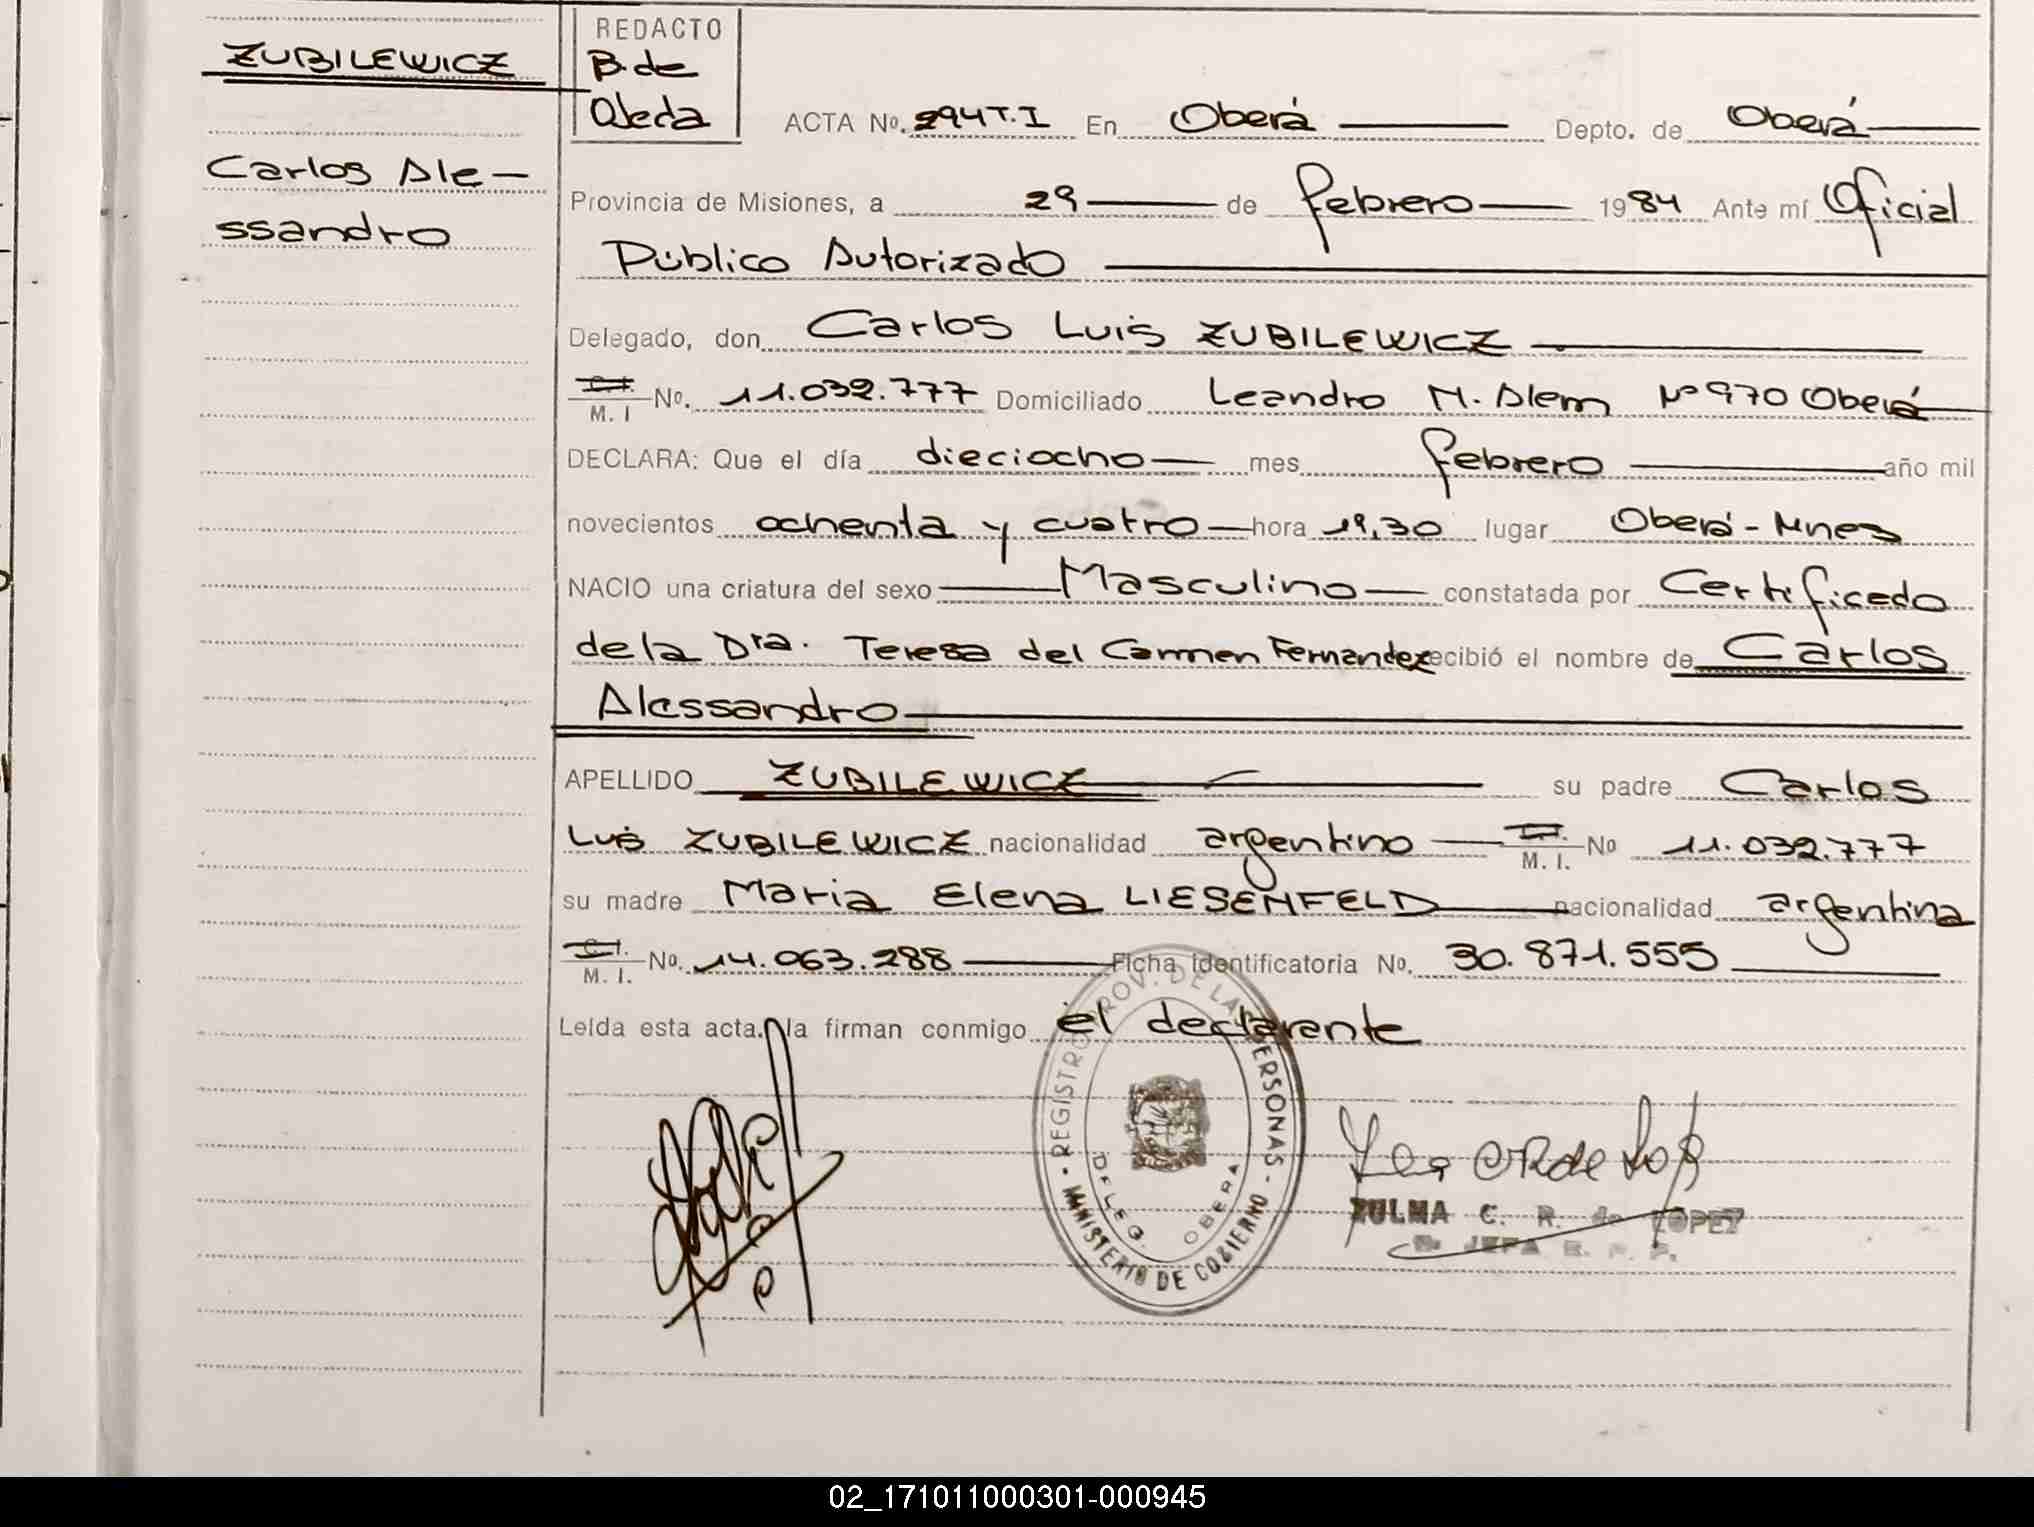 ZUBILEWICZ
Carlos Ale-
ssandro
REDACTO
B. de
Ojeda
ACTA No. 294 T.I En Oberá Depto. de Oberá
Provincia de Misiones, a 29 de febrero 1984 Ante mí Oficial
Público Autorizado
Delegado, don Carlos Luis ZUBILEWICZ
C.I. M. I No. 11.032.777 Domiciliado Leandro N. Alem Nº 970 Oberá
DECLARA: Que el día dieciocho mes febrero año mil
novecientos ochenta y cuatro hora 19,30 lugar Oberá - Mnes
NACIO una criatura del sexo Masculino constatada por Certificado
de la Dra. Teresa del Carmen Fernandez recibió el nombre de Carlos
Alessandro
APELLIDO ZUBILEWICZ su padre Carlos
Luis ZUBILEWICZ nacionalidad argentino C.I. M. I. No 11.032.777
su madre Maria Elena LIESENFELD nacionalidad argentina
C.I. M. I. No. 14.063.288 Ficha identificatoria No. 30.871.555
Leída esta acta, la firman conmigo el declarante
REGISTRO PROV. DE LAS PERSONAS - MINISTERIO DE GOBIERNO
DELEG. OBERA
ZULMA C. R. de LOPEZ
JEFA R. P. P.
02_171011000301-000945